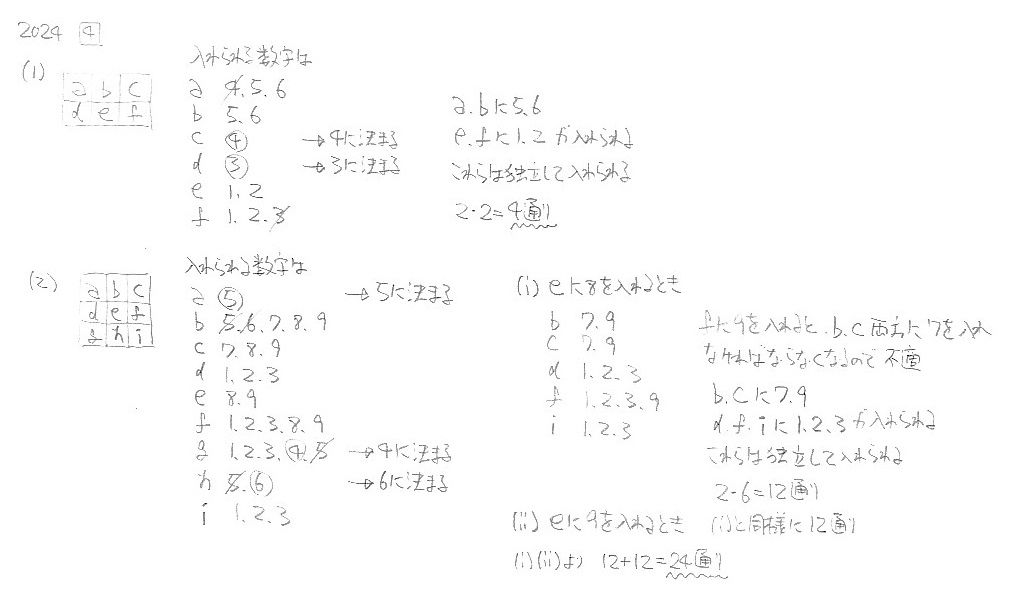 2024 4
(1)
a b c
d e f
入れられる数字は
a 4.5.6
b 5.6
c 4 →4に決まる
d 3 →3に決まる
e 1.2
f 1.2.3
a.bに5.6
e.fに1.2が入れられる
これらは独立して入れられる
2・2=4通り
(2)
a b c
d e f
g h i
入れられる数字は
a 5 →5に決まる
b 5.6.7.8.9
c 7.8.9
d 1.2.3
e 8.9
f 1.2.3.8.9
g 1.2.3.4.5 →4に決まる
h 5.6 →6に決まる
i 1.2.3
(i) eに8を入れるとき
b 7.9
c 7.9
d 1.2.3
f 1.2.3.9
i 1.2.3
fに9を入れると.b.c両方に7を入れ
なければならなくなるので不適
b.cに7.9
d.f.iに1.2.3が入れられる
これらは独立して入れられる
2・6=12通り
(ii) eに9を入れるとき (i)と同様に12通り
(i)(ii)より 12+12=24通り